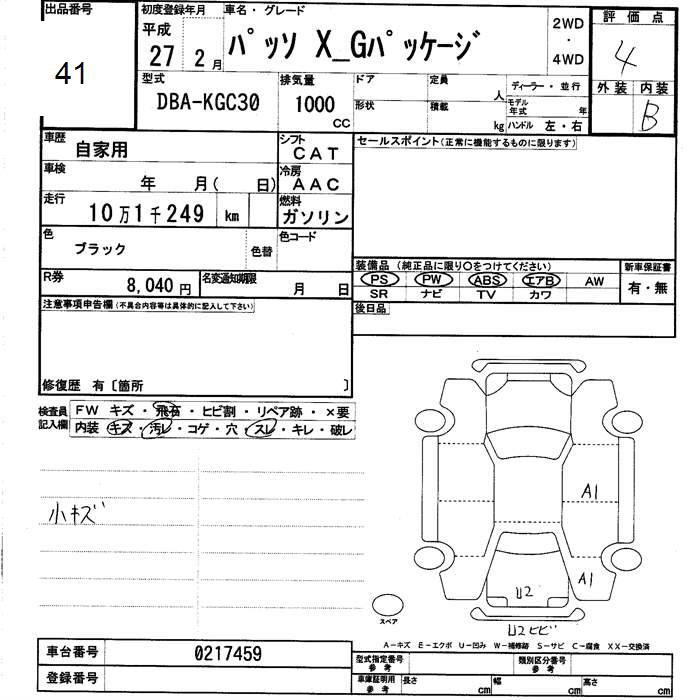 出品番号
41
初度登録年月
平成
27 2月
車名・グレード
パッソ X_Gパッケージ
2WD
・
4WD
評価点
4
外装 内装
B
型式
DBA-KGC30
排気量
1000
CC
ドア
形状
定員
人
積載
kg
ディーラー・並行
モデル年式 年
ハンドル 左・右
車歴
自家用
シフト
CAT
車検
年 月( 日)
冷房
AAC
走行
10万1千249 km
燃料
ガソリン
色
ブラック
色替
色コード
R券
8,040円
名変通知期限
月 日
セールスポイント(正常に機能するものに限ります)
装備品 (純正品に限り○をつけてください)
PS PW ABS エアB AW
SR ナビ TV カワ
新車保証書
有・無
後日品
注意事項申告欄(不具合内容等は具体的に記入して下さい)
修復歴 有〔箇所 〕
検査員
記入欄
FW キズ・飛石・ヒビ割・リペア跡・×要
内装 キズ・汚レ・コゲ・穴・スレ・キレ・破レ
小キズ
A1
A1
U2
U2ヒビ
スペア
A-キズ E-エクボ U-凹み W-補修跡 S-サビ C-腐食 XX-交換済
車台番号
0217459
登録番号
型式指定番号
参考
類別区分番号
参考
車庫証明用
参考
長さ cm
幅 cm
高さ cm